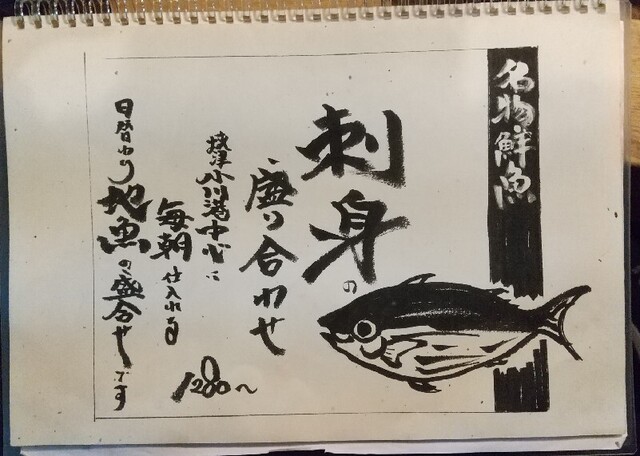 名物鮮魚
刺身の
盛り合わせ
焼津小川港中心に
毎朝仕入れる
日替わり地魚の盛合せです
1280~